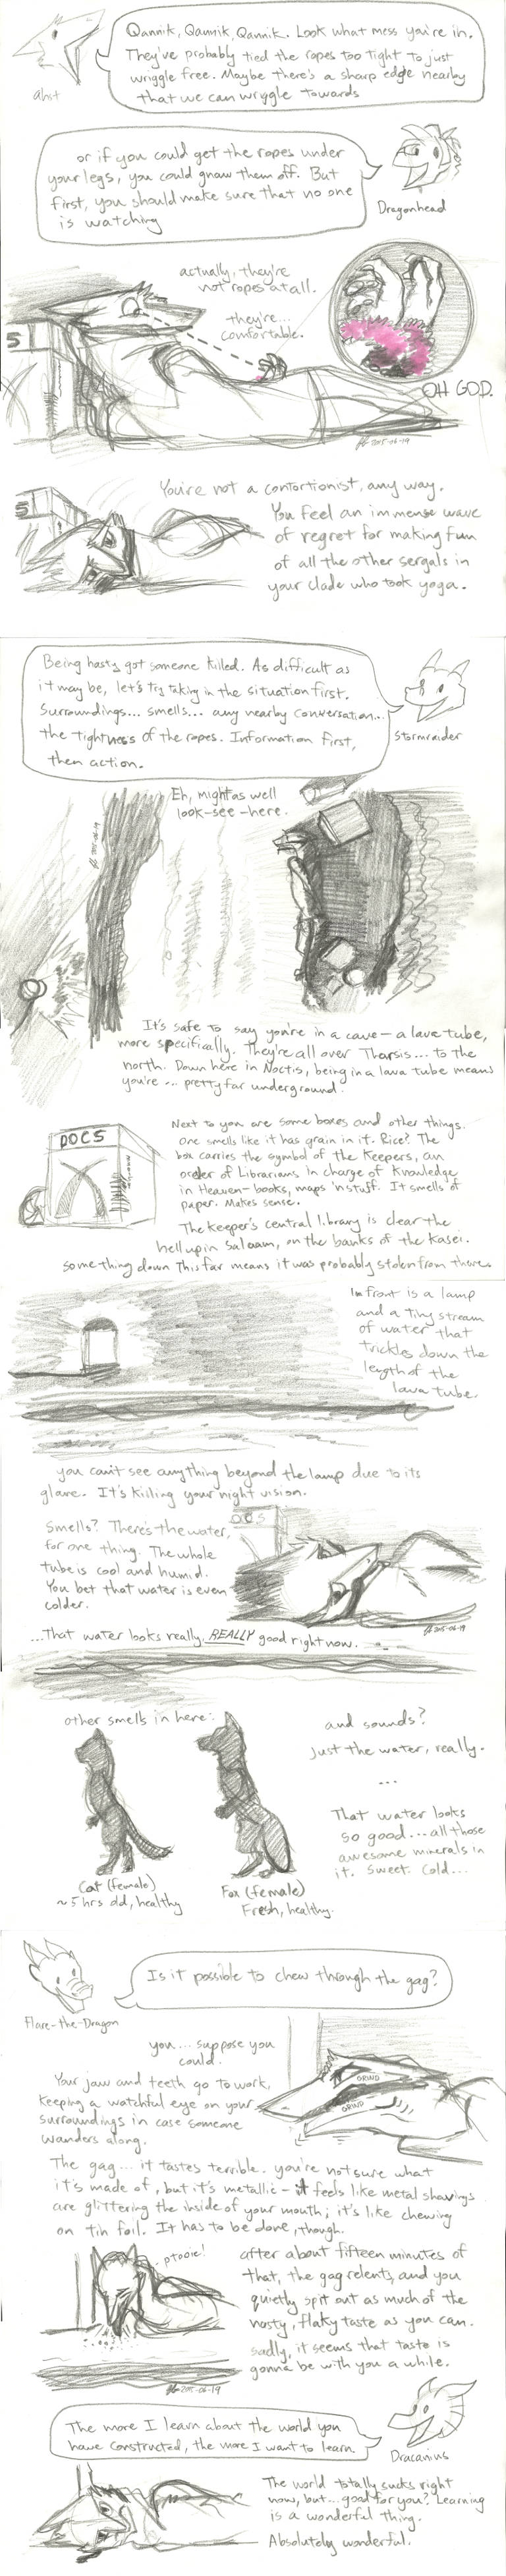 Qannik, Qannik, Qannik. Look what mess you're in.
They've probably tied the ropes too tight to just
wriggle free. Maybe there's a sharp edge nearby
that we can wriggle towards
ahst
or if you could get the ropes under
your legs, you could gnaw them off. But
first, you should make sure that no one
is watching
Dragonhead
actually, they're
not ropes at all.
they're...
comfortable.
5
OH GOD.
2015-06-19
You're not a contortionist, any way.
You feel an immense wave
of regret for making fun
of all the other sergals in
your clade who took yoga.
5
Being hasty got someone killed. As difficult as
it may be, let's try taking in the situation first.
Surroundings... smells... any nearby conversation...
the tightness of the ropes. Information first,
then action.
Stormraider
Eh, might as well
look-see-here.
2015-06-19
It's safe to say you're in a cave – a lava tube,
more specifically. They're all over Tharsis... to the
north. Down here in Noctis, being in a lava tube means
you're... pretty far underground.
DOCS
Next to you are some boxes and other things.
One smells like it has grain in it. Rice? The
box carries the symbol of the Keepers, an
order of Librarians. In charge of Knowledge
in Heaven – books, maps 'n stuff. It smells of
paper. Makes sense.
The Keeper's central library is clear the
hell up in Salaam, on the banks of the Kasei.
Something down this far means it was probably stolen from there.
In front is a lamp
and a tiny stream
of water that
trickles down the
length of the
lava tube.
you can't see anything beyond the lamp due to its
glare. It's killing your night vision.
DOCS
Smells? There's the water,
for one thing. The whole
tube is cool and humid.
You bet that water is even
colder.
2015-06-19
...That water looks really, REALLY good right now.
other smells in here:
Cat (female)
~5 hrs old, healthy
Fox (female)
Fresh, healthy.
and sounds?
Just the water, really.
...
That water looks
so good... all those
awesome minerals in
it. Sweet. Cold...
Is it possible to chew through the gag?
Flare-the-Dragon
you... suppose you
could.
Your jaw and teeth go to work,
keeping a watchful eye on your
surroundings in case someone
wanders along.
GRIND
GRIND
The gag... it tastes terrible. you're not sure what
it's made of, but it's metallic – it feels like metal shavings
are glittering the inside of your mouth; it's like chewing
on tin foil. It has to be done, though.
ptooie!
after about fifteen minutes of
that, the gag relents, and you
quietly spit out as much of the
nasty, flaky taste as you can.
sadly, it seems that taste is
gonna be with you a while.
2015-06-19
The more I learn about the world you
have constructed, the more I want to learn.
Dracanius
The world totally sucks right
now, but... good for you? Learning
is a wonderful thing.
Absolutely wonderful.